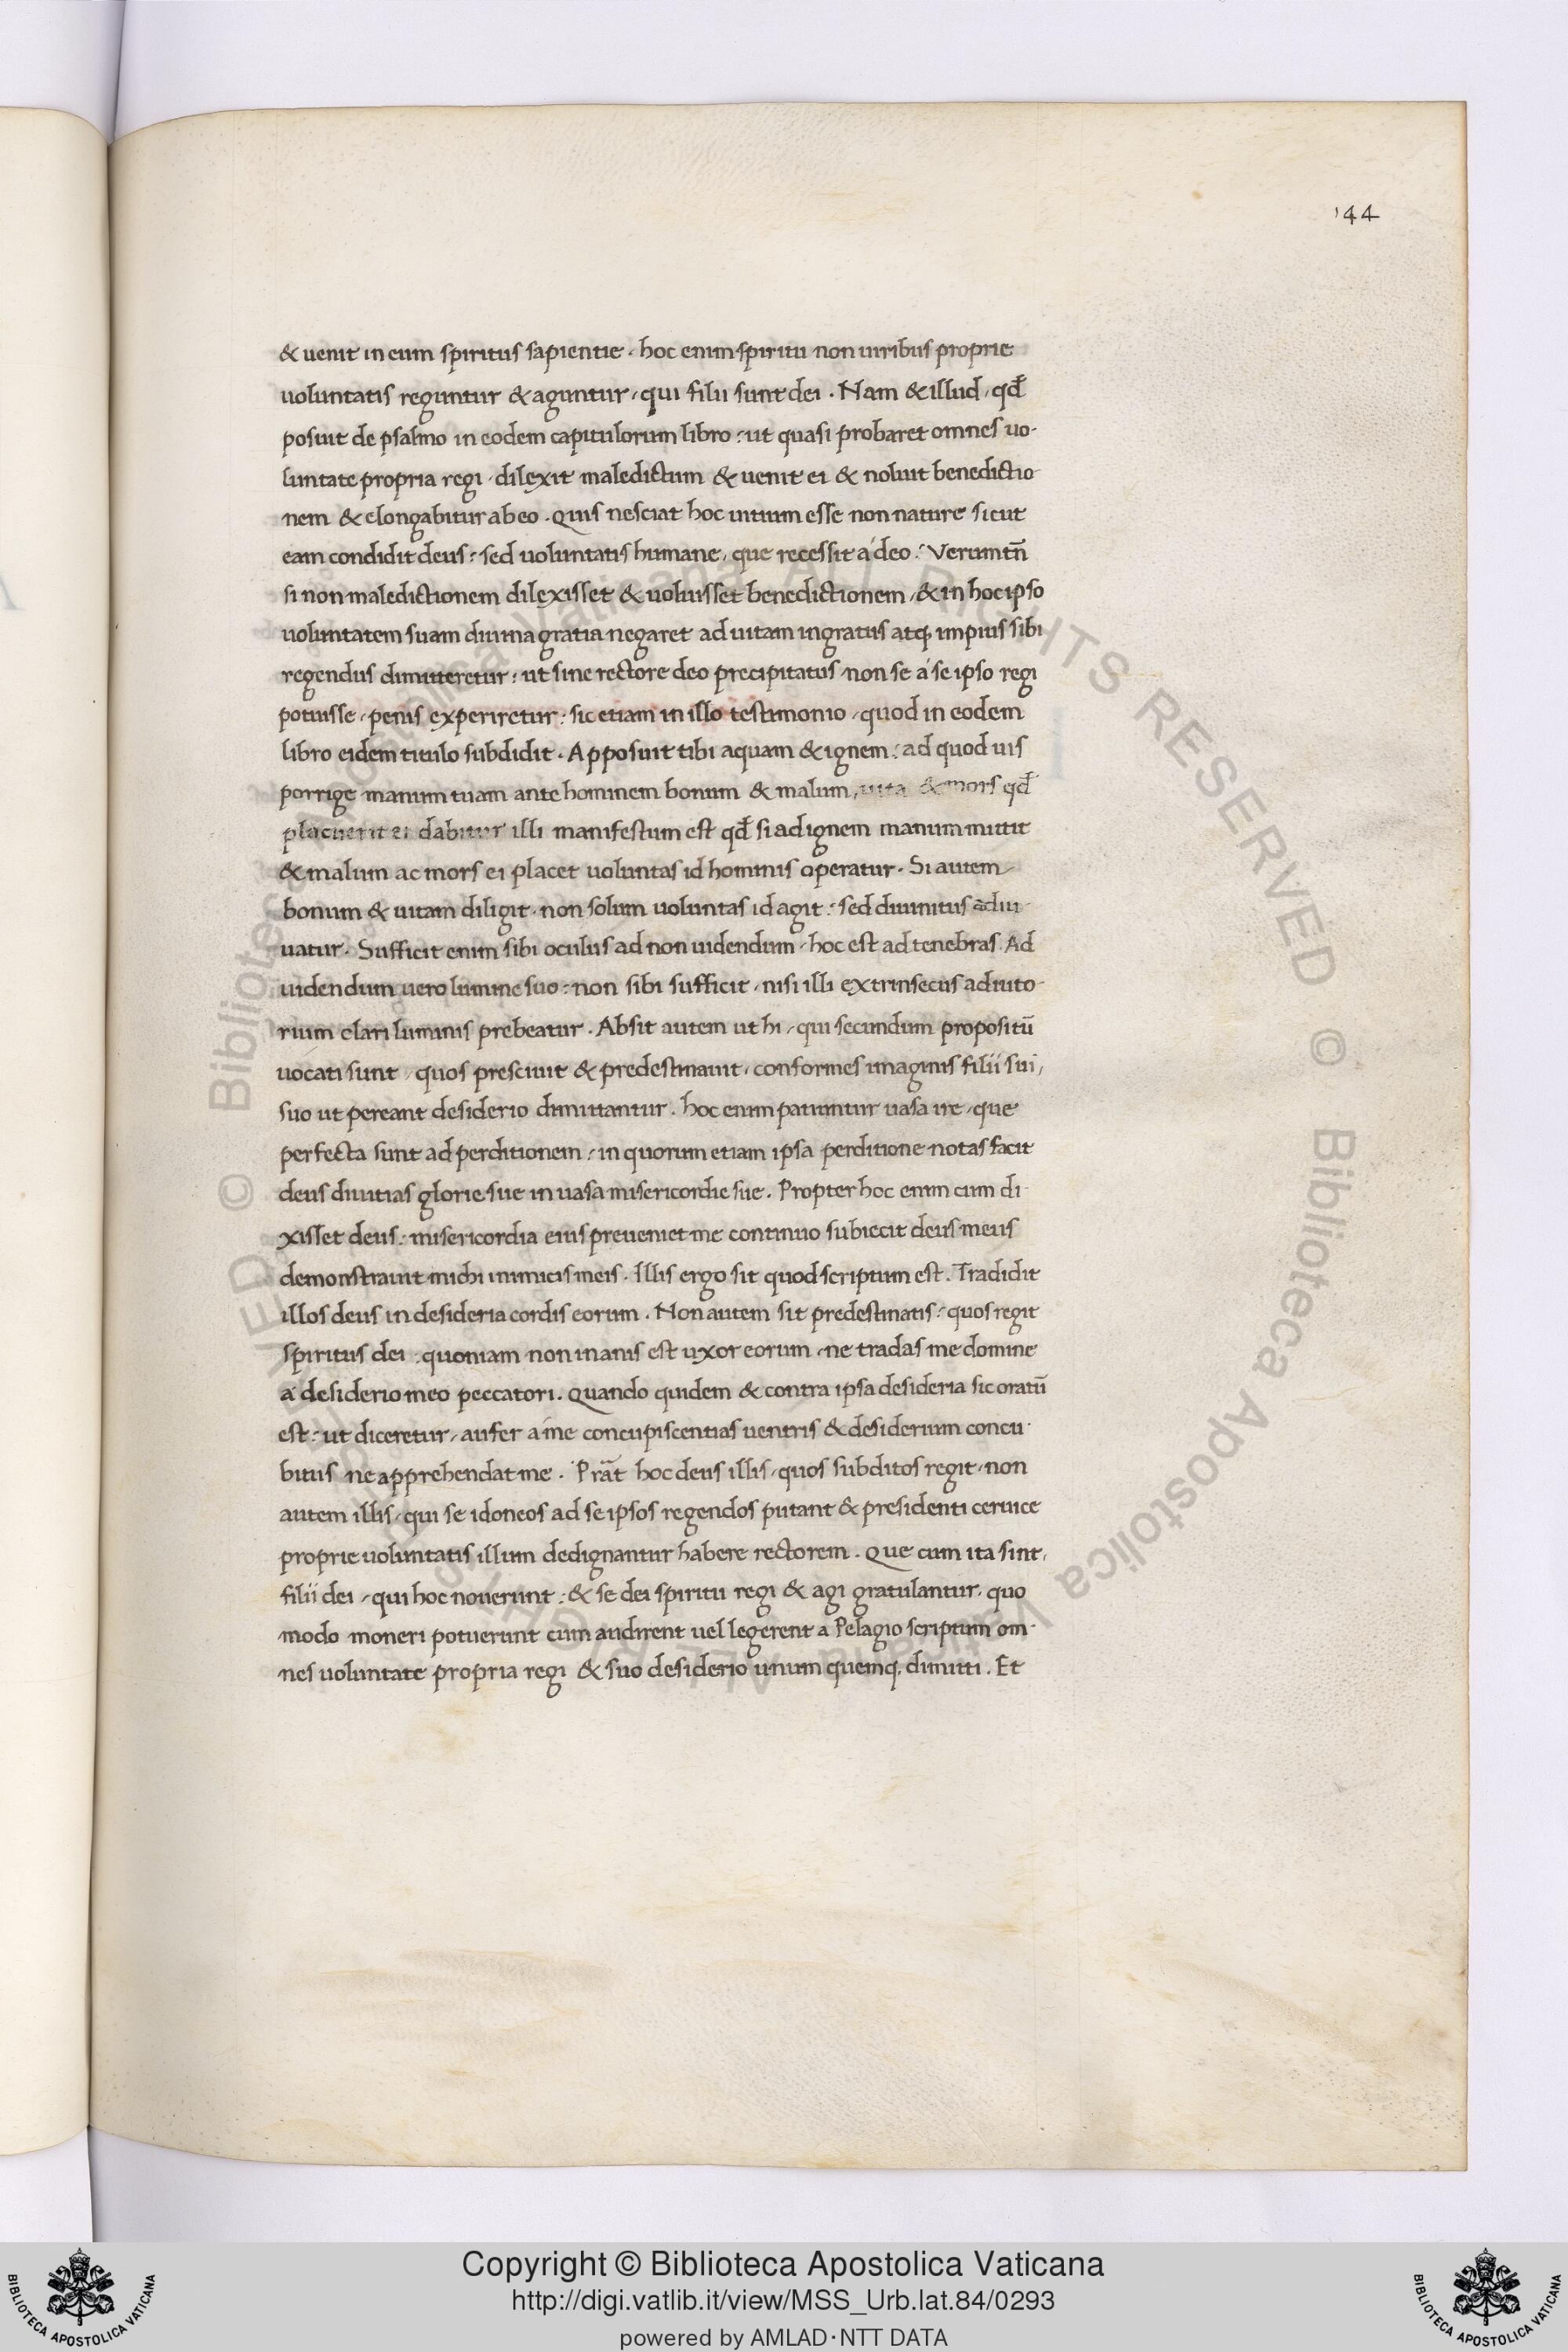 144
& uenit in eum spiritus sapientie · hoc enim spiritu non uiribus proprie
uoluntatis reguntur & aguntur, qui filii sunt dei . Nam & illud, qđ
posuit de psalmo in eodem capitulorum libro : ut quasi probaret omnes uo-
luntate propria regi · dilexit maledictum & uenit ei & noluit benedictio-
nem & elongabitur ab eo . Quis nesciat hoc uitium esse non nature sicut
eam condidit deus : sed uoluntatis humane, que recessit á deo : Verumtñ
si non maledictionem dilexisset & uoluisset benedictionem, & in hoc ipso
uoluntatem suam diuina gratia negaret adiutam ingratus atq; impius sibi
regendus dimitteretur : ut sine rectore deo precipitatus non se á se ipso regi
potuisse, penis experiretur : sic etiam in illo testimonio, quod in eodem
libro eidem titulo subdidit . Apposuit tibi aquam & ignem : ad quod uis
porrige manum tuam ante hominem bonum & malum, uita & mors qđ
placuerit ei dabitur illi manifestum est qđ si ad ignem manum mittit
& malum ac mors ei placet uoluntas id hominis operatur . Si autem
bonum & uitam diligit · non solum uoluntas id agit : sed diuinitus adiu-
uatur . Sufficit enim sibi oculus ad non uidendum, hoc est ad tenebras Ad
uidendum uero lumine suo : non sibi sufficit, nisi illi extrinsecus adiuto-
rium clari luminis prebeatur . Absit autem ut hi, qui secundum propositū
uocati sunt, quos presciuit & predestinauit, conformes imaginis filii sui,
suo ut pereant desiderio dimittantur . hoc enim patiuntur uasa ire, que
perfecta sunt ad perditionem, in quorum etiam ipsa perditione notas facit
deus diuitias glorie sue in uasa misericordie sue . Propter hoc enim cum di-
xisset deus : misericordia eius preueniet me continuo subiecit deus meus
demonstrauit michi inimicis meis . Illis ergo sit quod scriptum est . Tradidit
illos deus in desideria cordis eorum . Non autem sit predestinatis : quos regit
spiritus dei : quoniam non inanis est uxor eorum, ne tradas me domine
a desiderio meo peccatori . Quando quidem & contra ipsa desideria sic oratū
est : ut diceretur, aufer a me concupiscentias uentris & desiderium concu-
bitus ne apprehendat me . Prāt hoc deus illis, quos subditos regit, non
autem illis, qui se idoneos ad se ipsos regendos putant & presidenti ceruice
proprie uoluntatis illum dedignantur habere rectorem . Que cum ita sint,
filii dei, qui hoc nouerunt : & se dei spiritu regi & agi gratulantur, quo
modo moneri potuerunt cum audirent uel legerent a Pelagio scriptum om-
nes uoluntate propria regi & suo desiderio unum quemq; dimitti . Et
© Biblioteca Apostolica Vaticana ALL RIGHTS RESERVED
© Biblioteca Apostolica Vaticana ALL RIGHTS RESERVED
Copyright © Biblioteca Apostolica Vaticana
http://digi.vatlib.it/view/MSS_Urb.lat.84/0293
powered by AMLAD·NTT DATA
BIBLIOTECA APOSTOLICA VATICANA
BIBLIOTECA APOSTOLICA VATICANA